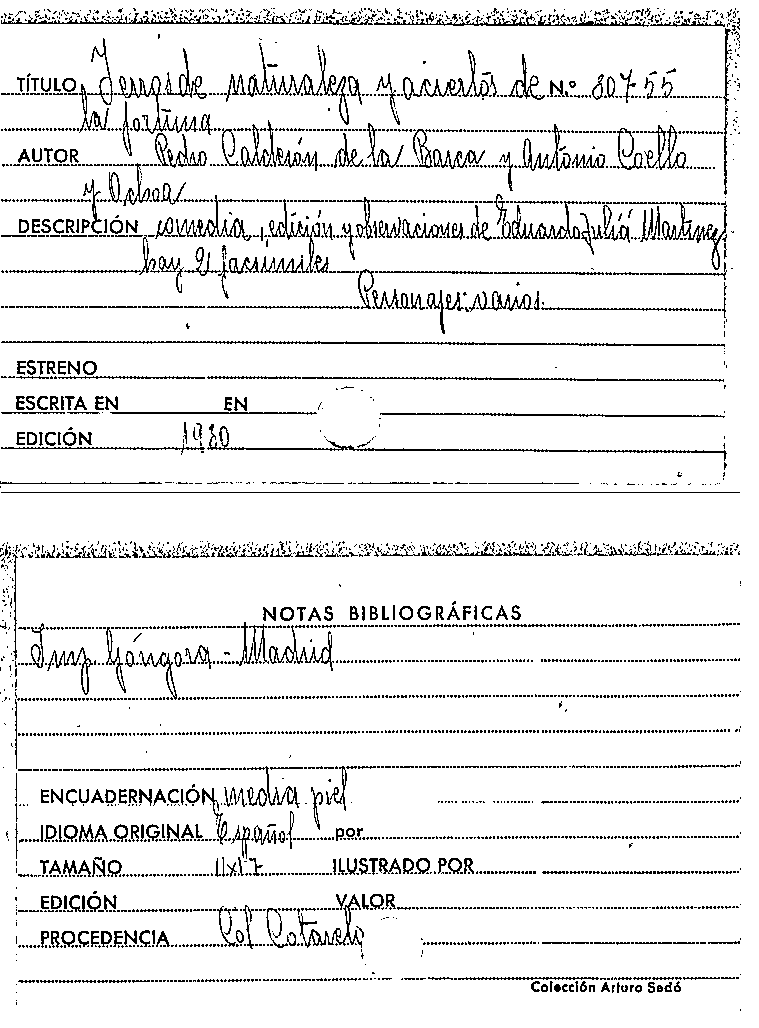 TÍTULO Yerros de naturaleza y aciertos de N.º 80755
la fortuna
AUTOR Pedro Calderón de la Barca y Antonio Coello
y Ochoa
DESCRIPCIÓN comedia, edición y observaciones de Eduardo Juliá Martinez
hay 2 facsímiles
Personajes: varios.
ESTRENO
ESCRITA EN EN
EDICIÓN 1930
NOTAS BIBLIOGRÁFICAS
Imp. Góngora - Madrid
ENCUADERNACIÓN media piel
IDIOMA ORIGINAL Español por
TAMAÑO 11x17 ILUSTRADO POR
EDICIÓN VALOR
PROCEDENCIA Col Cotarelo
Colección Arturo Sedó